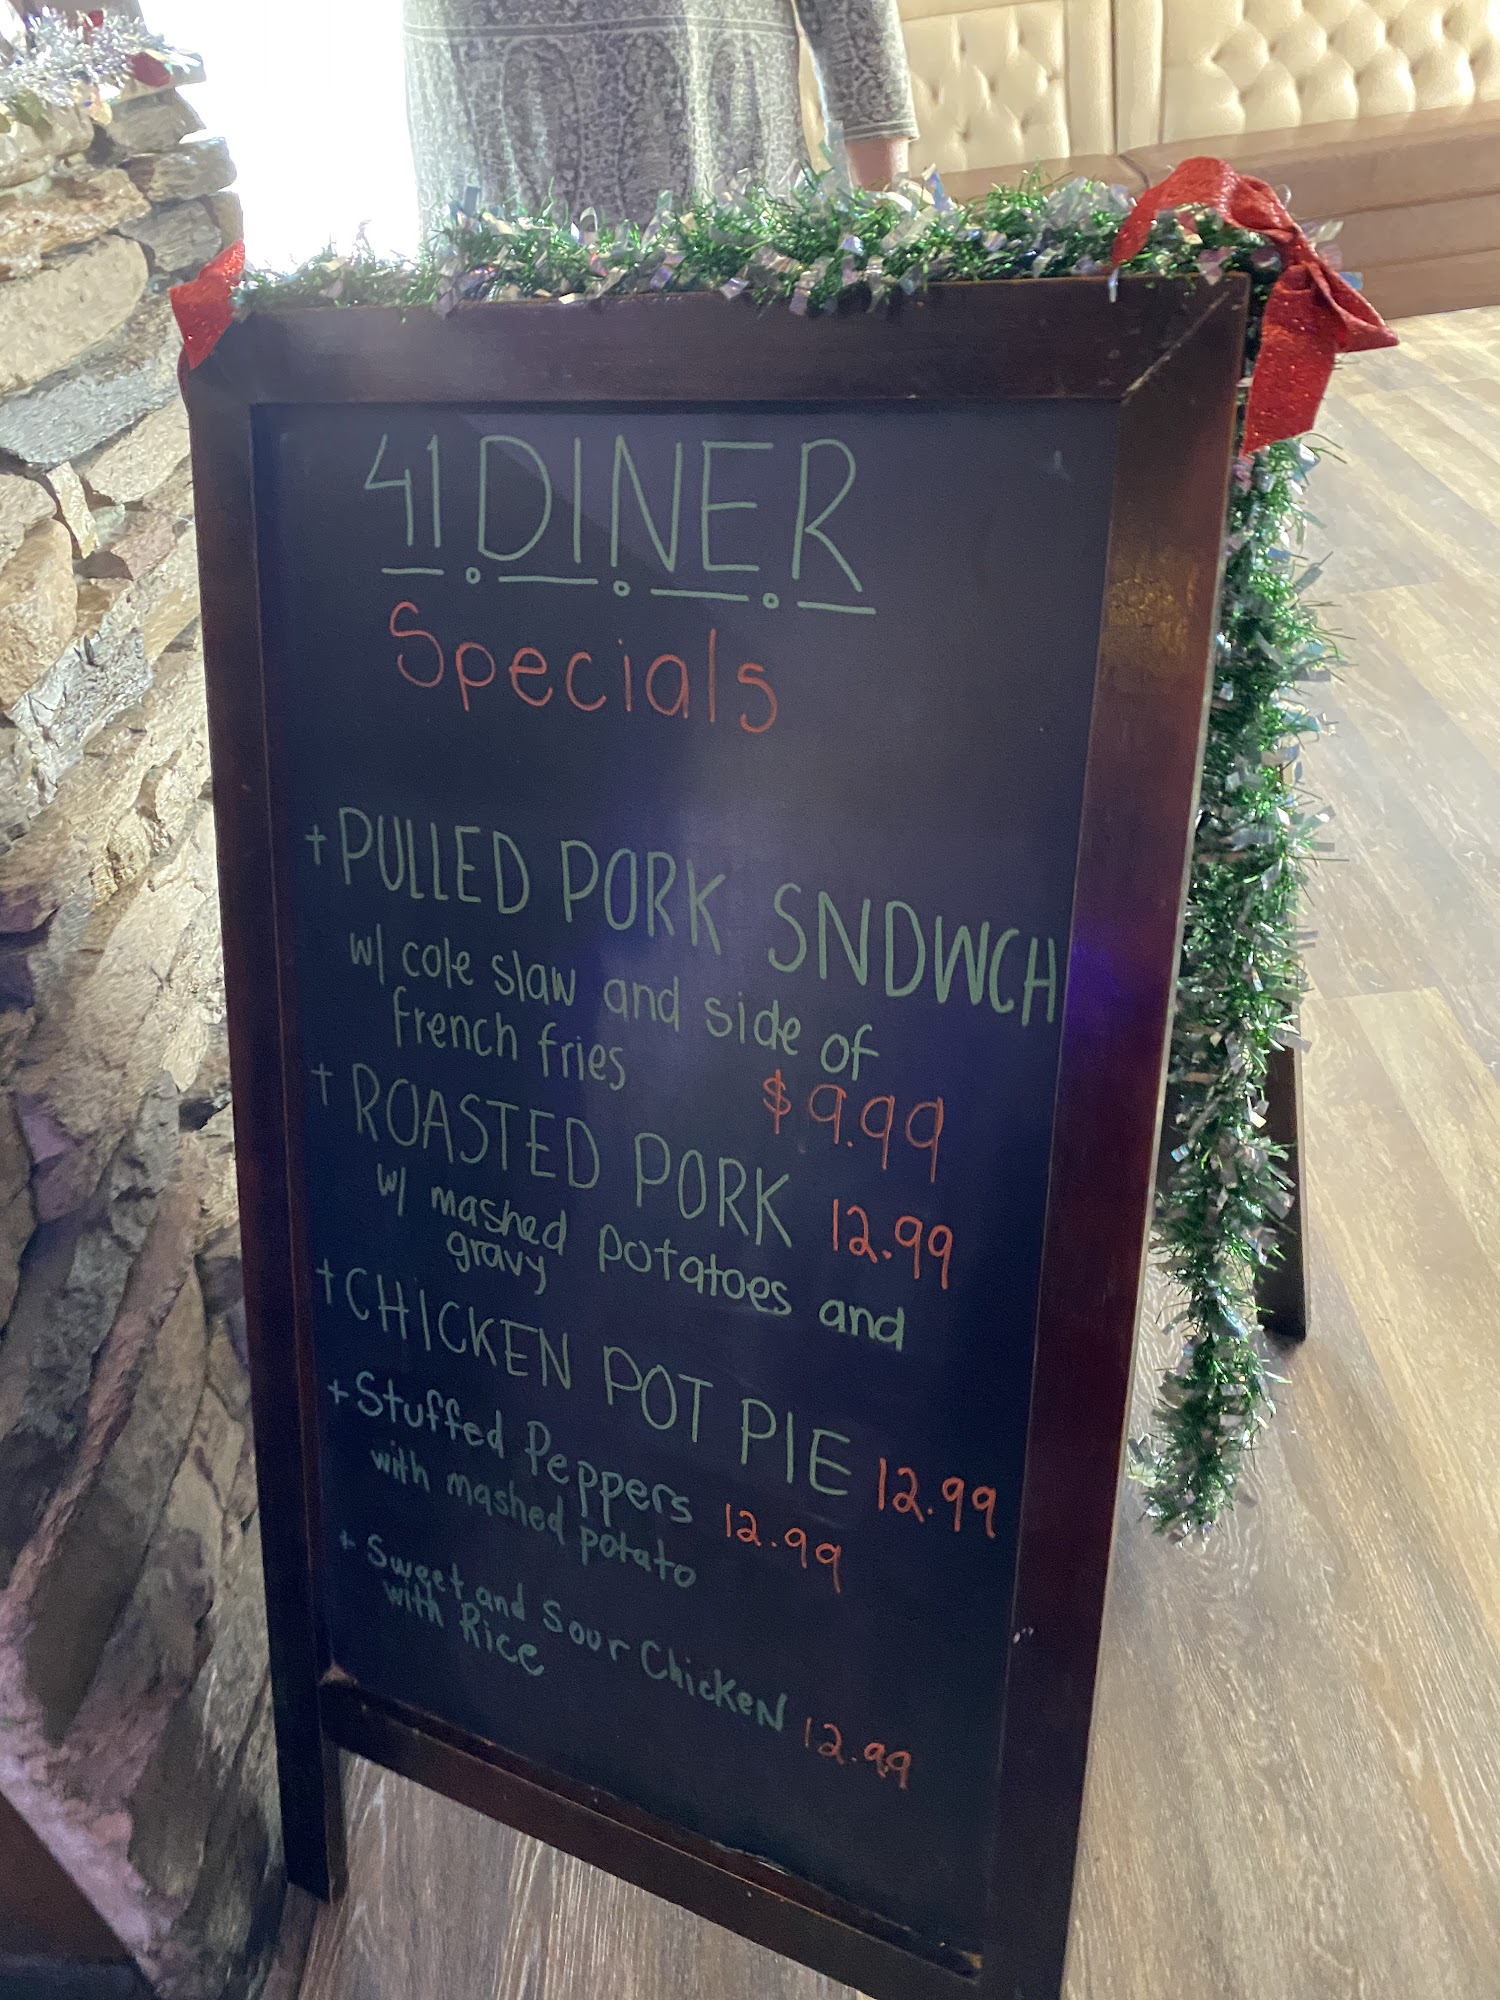 41 DINER
Specials
+ PULLED PORK SNDWCH
w/ cole slaw and side of
french fries $9.99
+ ROASTED PORK 12.99
w/ mashed potatoes and
gravy
+ CHICKEN POT PIE 12.99
+ Stuffed Peppers 12.99
with mashed potato
+ Sweet and Sour Chicken 12.99
with Rice